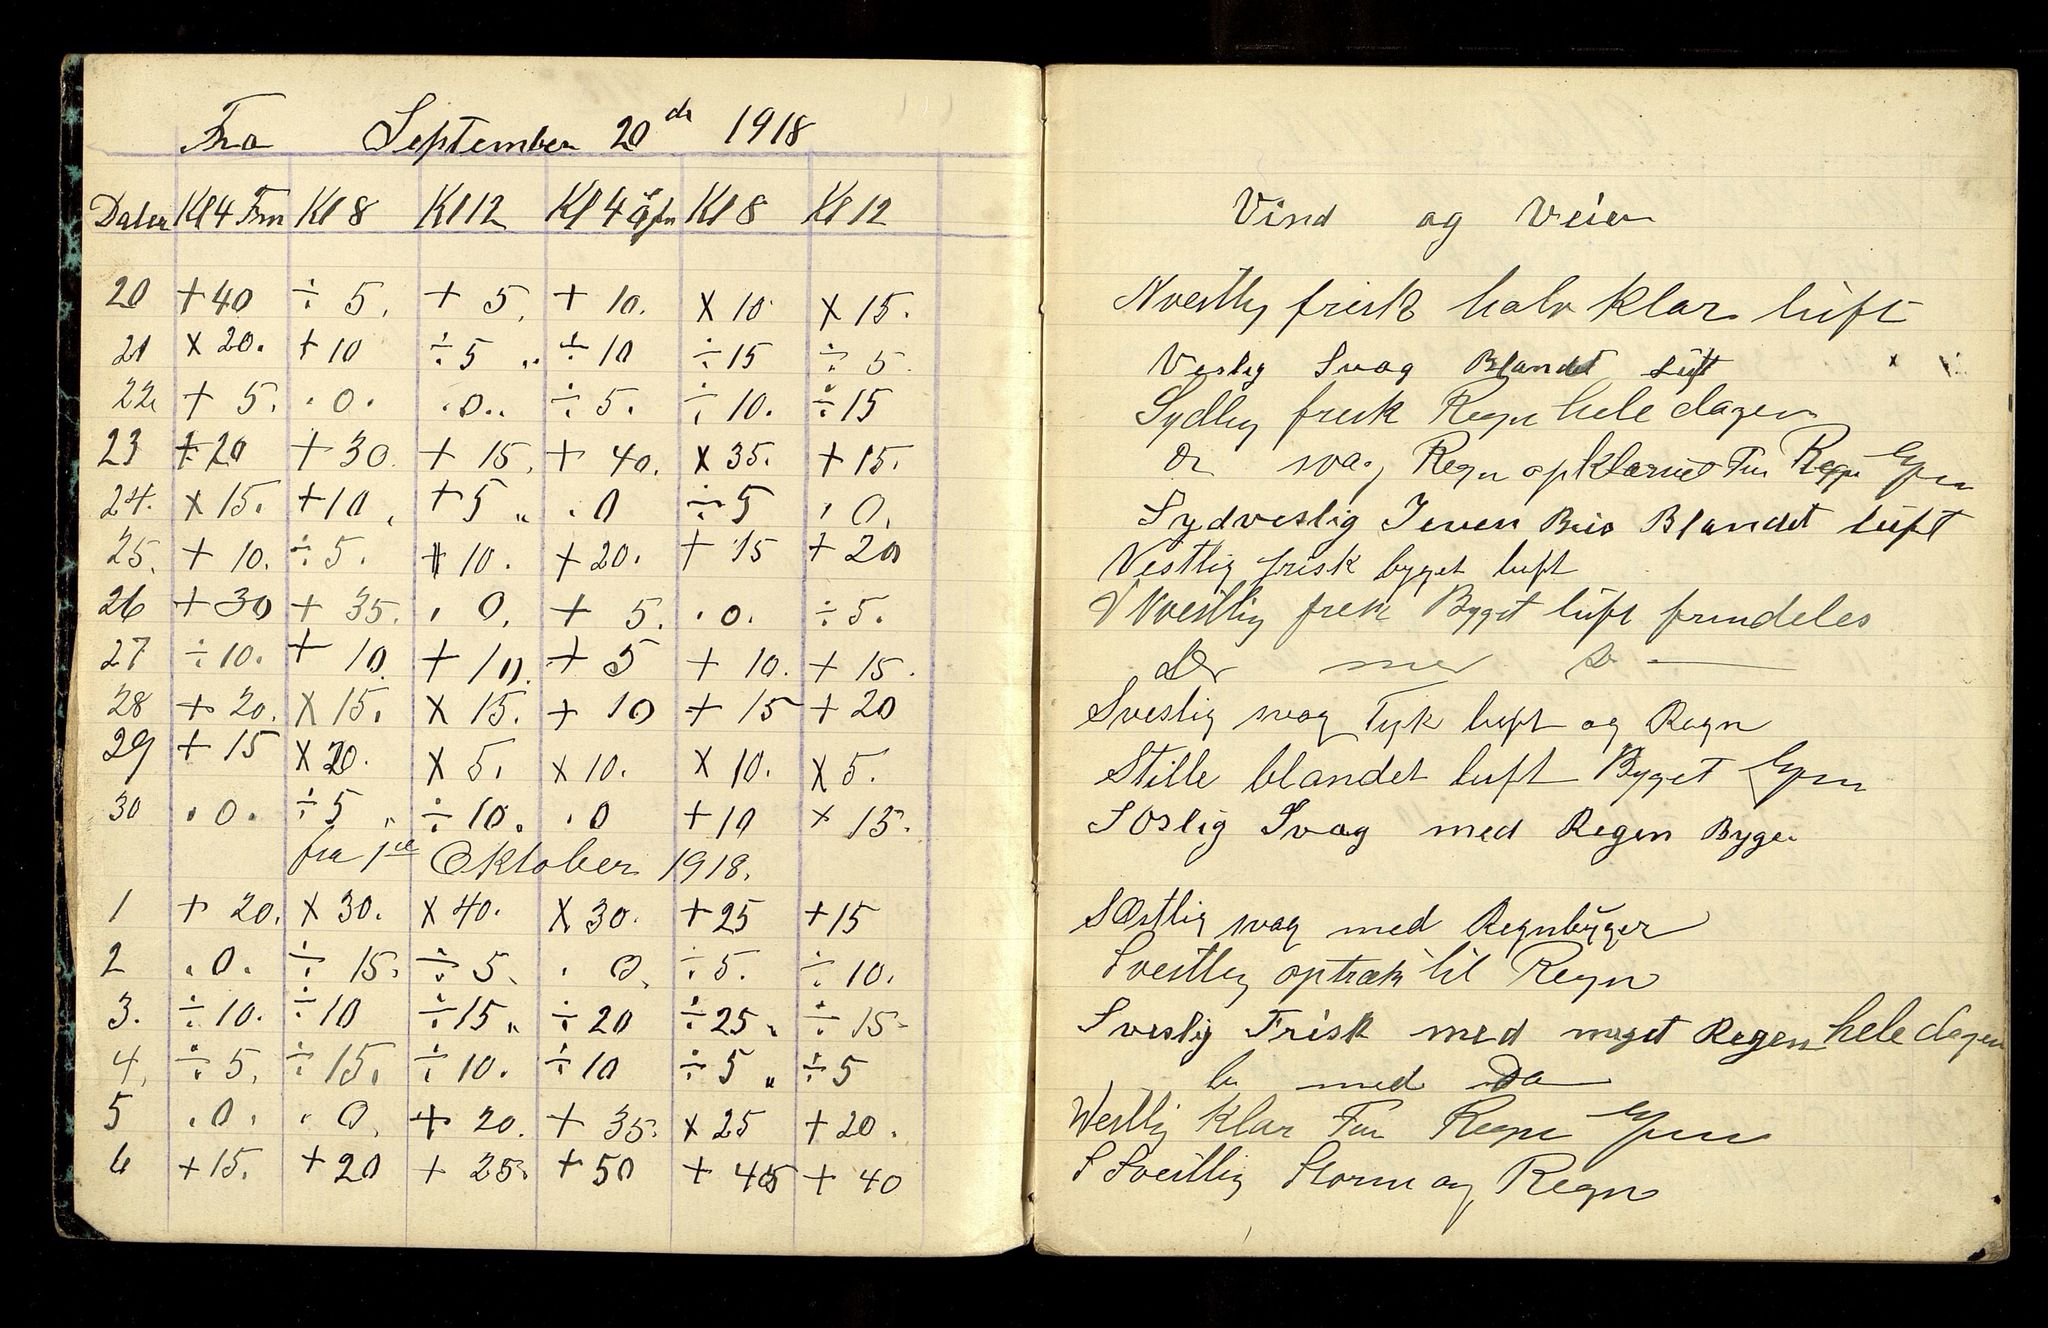 Fra September 20de 1918
Dater Kl 4 Fm Kl 8 Kl 12 Kl 4 Kl 8 Kl 12
20 + 40 ÷ 5. + 5. + 10. × 10 × 15.
21 × 20. + 10 ÷ 5 „ ÷ 10 ÷ 15 ÷ 5.
22 + 5. . 0. . 0.. ÷ 5. ÷ 10. ÷ 15
23 20 + 30. + 15. + 40. × 35. + 15.
24. × 15. + 10 „ + 5 „ . 0 ÷ 5 . 0.
25. + 10. ÷ 5. + 10. + 20. + 15 + 20
26 + 30 + 35. . 0. + 5. . 0. ÷ 5.
27 ÷ 10. + 10. + 10. + 5 + 10. + 15.
28 + 20. × 15. × 15. + 10 + 15 + 20
29 + 15 × 20. × 5. × 10. × 10. × 5.
30 . 0. ÷ 5 „ ÷ 10. . 0 + 10 × 15.
fra 1ste Oktober 1918.
1 + 20. × 30. × 40. × 30. + 25 + 15
2 . 0. ÷ 15. ÷ 5. . 0. ÷ 5. ÷ 10.
3. ÷ 10. ÷ 10 ÷ 15 „ ÷ 20 ÷ 25 „ ÷ 15
4. ÷ 5. ÷ 15. ÷ 10. ÷ 10 ÷ 5 „ ÷ 5
5 . 0. . 0. + 20. + 35. × 25 + 20.
6 + 15. + 20 + 25. + 50 + 45 + 40
Vind og Veier
Nvestlig frisk halv klar luft
Veslig Svag Blandet luft
Sydlig frisk Regn hele dagen
Do svag Regn opklarned Fm Regn Efm
Sydveslig Jeven Bris Blandet luft
Vestlig frisk byget luft
V Nvestlig frisk Bygget luft fremdeles
Do med Do
Sveslig svag Tyk luft og Regn
Stille blandet luft Byget Efm
SOslig Svag med Regen Byger
SOstlig svag med Regnbyger
Svestlig optræk til Regn
Sveslig Frisk med meget Regen hele dagen
Do med Do
Westlig klar Fm Regn Efm
S Svestlig Storm og Regn